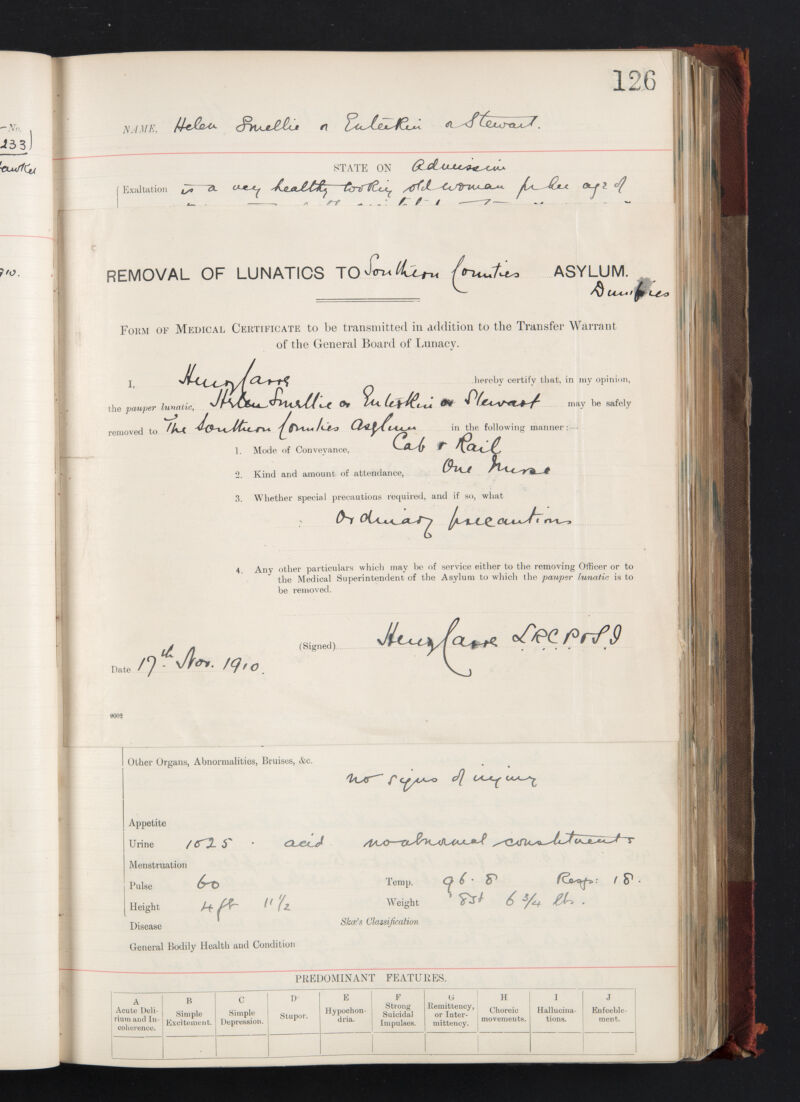 126
No.
233)
910.
NAME, Helen Smellie or Enterkin or Stewart.
STATE ON Admission
Exaltation is a very healthy looking old woman for her age of
REMOVAL OF LUNATICS TO Southern Counties ASYLUM.
Dumfries
FORM OF MEDICAL CERTIFICATE to be transmitted in addition to the Transfer Warrant
of the General Board of Lunacy.
I, Henry Carre hereby certify that, in my opinion,
the pauper lunatic, Helen Smellie or Enterkin or Stewart may be safely
removed to The Southern Counties Asylum in the following manner:—
1. Mode of Conveyance, Cab & Rail
2. Kind and amount of attendance, One Nurse
3. Whether special precautions required, and if so, what
Ordinary precautions
4. Any other particulars which may be of service either to the removing Officer or to
the Medical Superintendent of the Asylum to which the pauper lunatic is to
be removed.
(Signed) Henry Carre L.R.C.P. & S.I
Date 17th Nov. 1910.
9002
Other Organs, Abnormalities, Bruises, &c.
no signs of injury
Appetite
Urine 1025 . acid no abnormal constituents
Menstruation
Pulse 60 Temp. 96.8 Resp: 18.
Height 4 ft 11 1/2 Weight 8st 6 3/4 lbs.
Disease Skae's Classification
General Bodily Health and Condition
PREDOMINANT FEATURES.
A B C D E F G H I J
Acute Deli-
rium and In-
coherence. Simple
Excitement. Simple
Depression. Stupor. Hypochon-
dria. Strong
Suicidal
Impulses. Remittency,
or Inter-
mittency. Choreic
movements. Hallucina-
tions. Enfeeble-
ment.